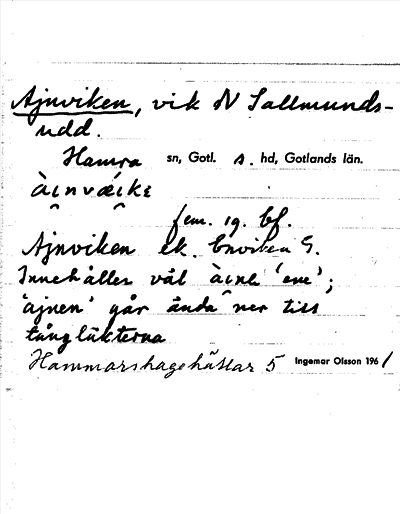 Ajnviken, vik N Sallmunds-
udd.
Hamra sn, Gotl. s. hd, Gotlands län.
fem. sg. bf.
Ajnviken ek. Enviken G.
Innehåller väl 'ene';
'ajnen' går ända ner till
tångläkterna
Hammarshagehällar 5 Ingemar Olsson 1961